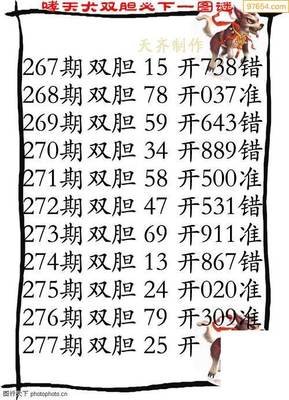 哮天犬双胆必下一图谜
97654.com
天齐制作
267期双胆 15 开738错
268期双胆 78 开037准
269期双胆 59 开643错
270期双胆 34 开889错
271期双胆 58 开500准
272期双胆 47 开531错
273期双胆 69 开911准
274期双胆 13 开867错
275期双胆 24 开020准
276期双胆 79 开309准
277期双胆 25 开